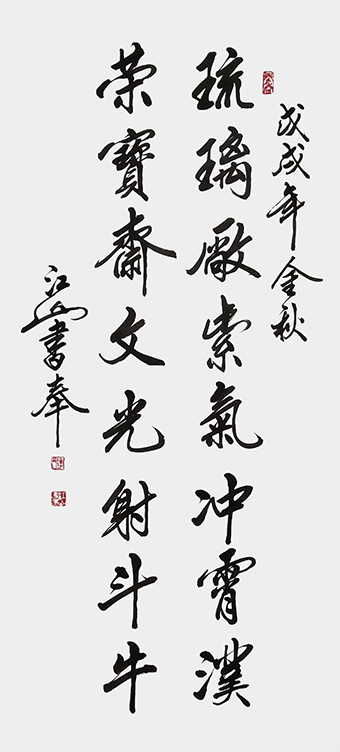 戊戌年金秋
琉璃廠紫氣冲霄漢
荣寶齋文光射斗牛
江書奉